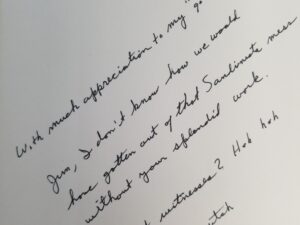 With much appreciation to my "go
Jim, I don't know how we would
have gotten out of that Sanlinate mess
without your splendid work.
witnesses? Hoh hoh